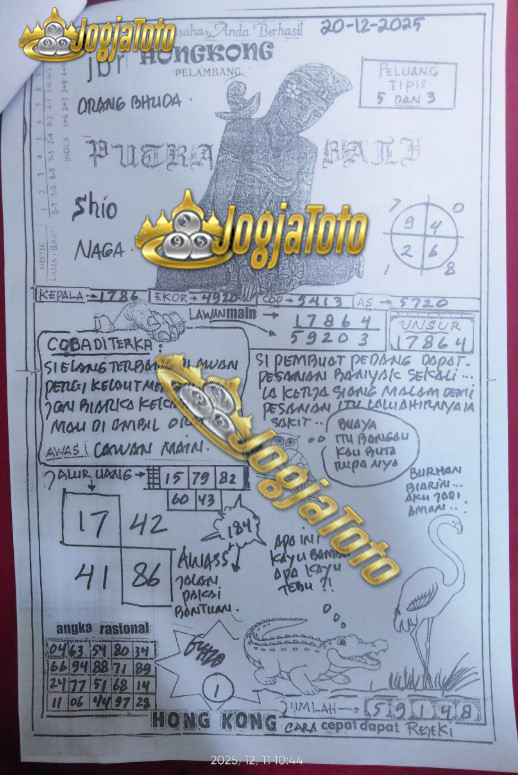 JogjaToto
usaha Anda Berhasil
20-12-2025
HONGKONG
PELAMBANG
ORANG BHUDA
PELUANG
TIPIS
5 DAN 3
PUTRA BALI
Shio
NAGA
7 0
9 4
2 6
1 8
JogjaToto
KEPALA → 1786
EKOR → 4920
COP → 5413
AS → 5720
LAWAN main
17864
59203
UNSUR
17864
COBA DI TERKA:
SI ELANG TERBANG
PERGI KELAUT
DAN BIARKA
MAU DI AMBIL
AWAS! LAWAN MAIN.
SI PEMBUAT PEDANG DAPAT-
PESANAN BANYAK SEKALI...
IA KERJA SIANG MALAM DEMI
PESANAN ITU LALU AHIRNYA IA
SAKIT..
BUAYA
ITU BANGAU
KAU BUTA
RUPANYA
BURHAN
BIARIN...
AKU JADI
AMAN...!
JogjaToto
JALUR UANG →
15 79 82
60 43
17 42
41 86
184
AWASS
JALAN
PAKSI
BANTUAN.
APA INI
KAYU BAMBU
APA KAYU
TEBU ?!
angka rasional
04 63 54 80 34
66 94 88 71 89
24 77 51 68 14
11 06 44 97 28
1
JUMLAH → 5 9 1 4 8
HONG KONG
CARA cepat dapat REJEKI
2025/12/11 10:44